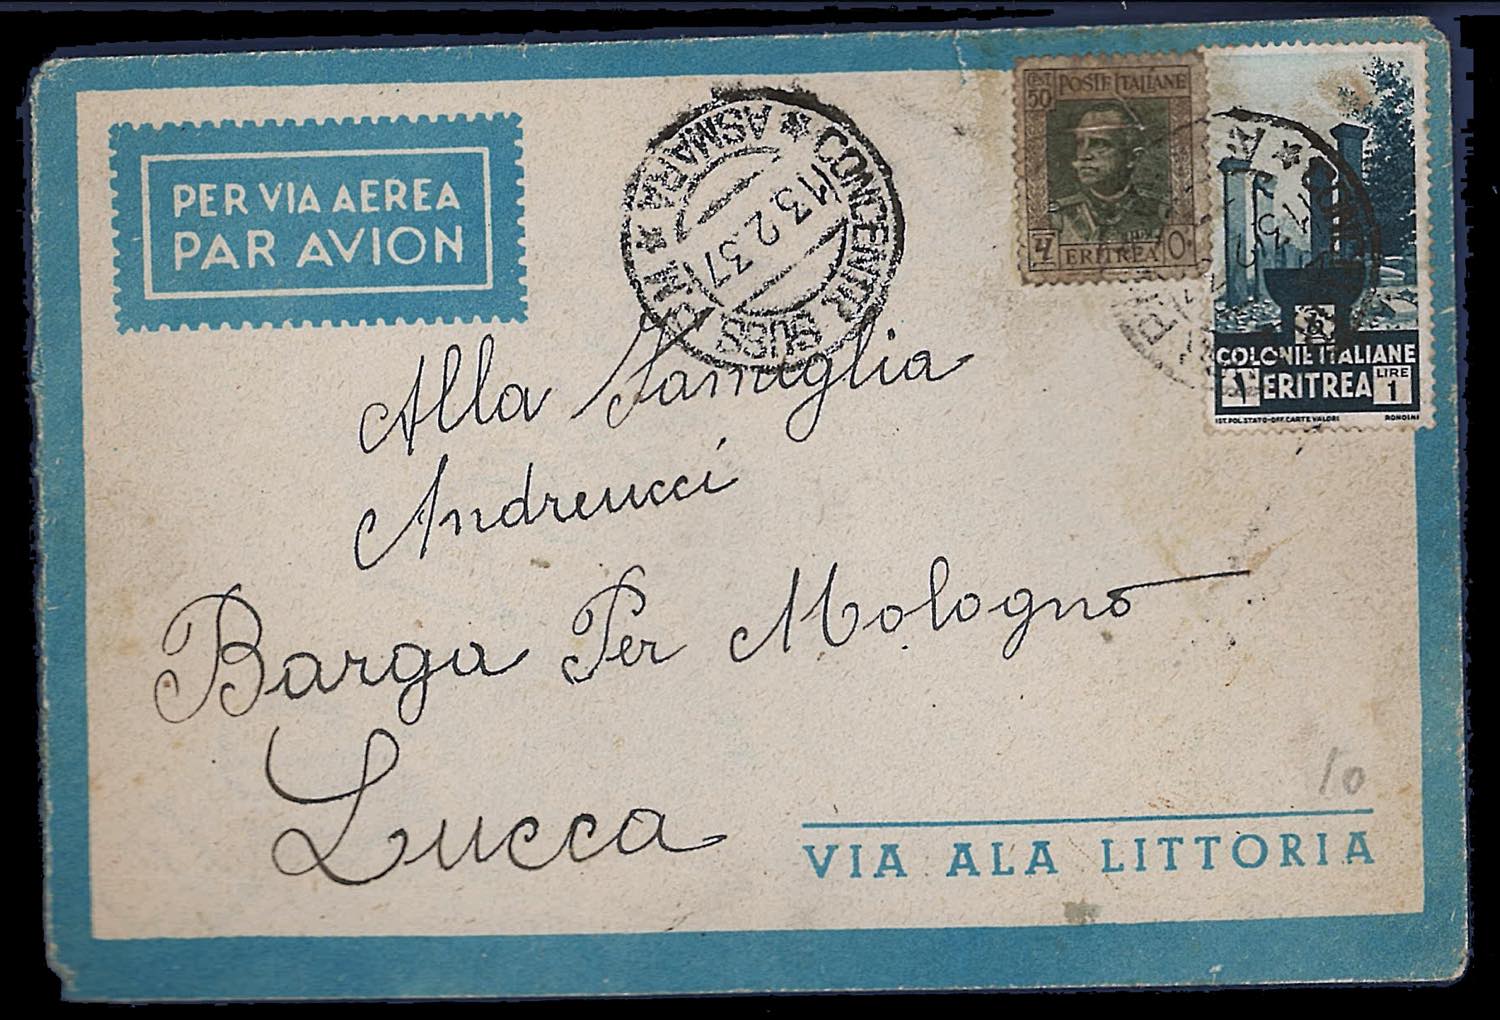 PER VIA AEREA
PAR AVION
CONCENTR. SUSS. P.NI * ASMARA *
13.2.37
CENT 50 POSTE ITALIANE
ERITREA
COLONIE ITALIANE
1 ERITREA LIRE 1
IST. POL. STATO-OFF. CARTE VALORI RONDINI
Alla Famiglia
Andreucci
Barga Per Mologno
Lucca
10
VIA ALA LITTORIA